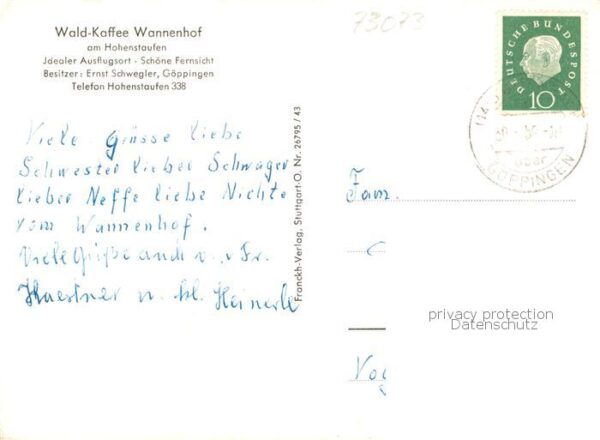 Wald-Kaffee Wannenhof
am Hohenstaufen
Jdealer Ausflugsort · Schöne Fernsicht
Besitzer: Ernst Schwegler, Göppingen
Telefon Hohenstaufen 338
Viele grüsse liebe
Schwester lieber Schwager
lieber Neffe liebe Nichte
vom Wannenhof.
Viele Grüße auch v. Fr.
u. kl. Heinerle
Franckh-Verlag, Stuttgart-O. Nr. 26795/43
73073
DEUTSCHE BUNDESPOST
10
über
GÖPPINGEN
Fam.
privacy protection
Datenschutz